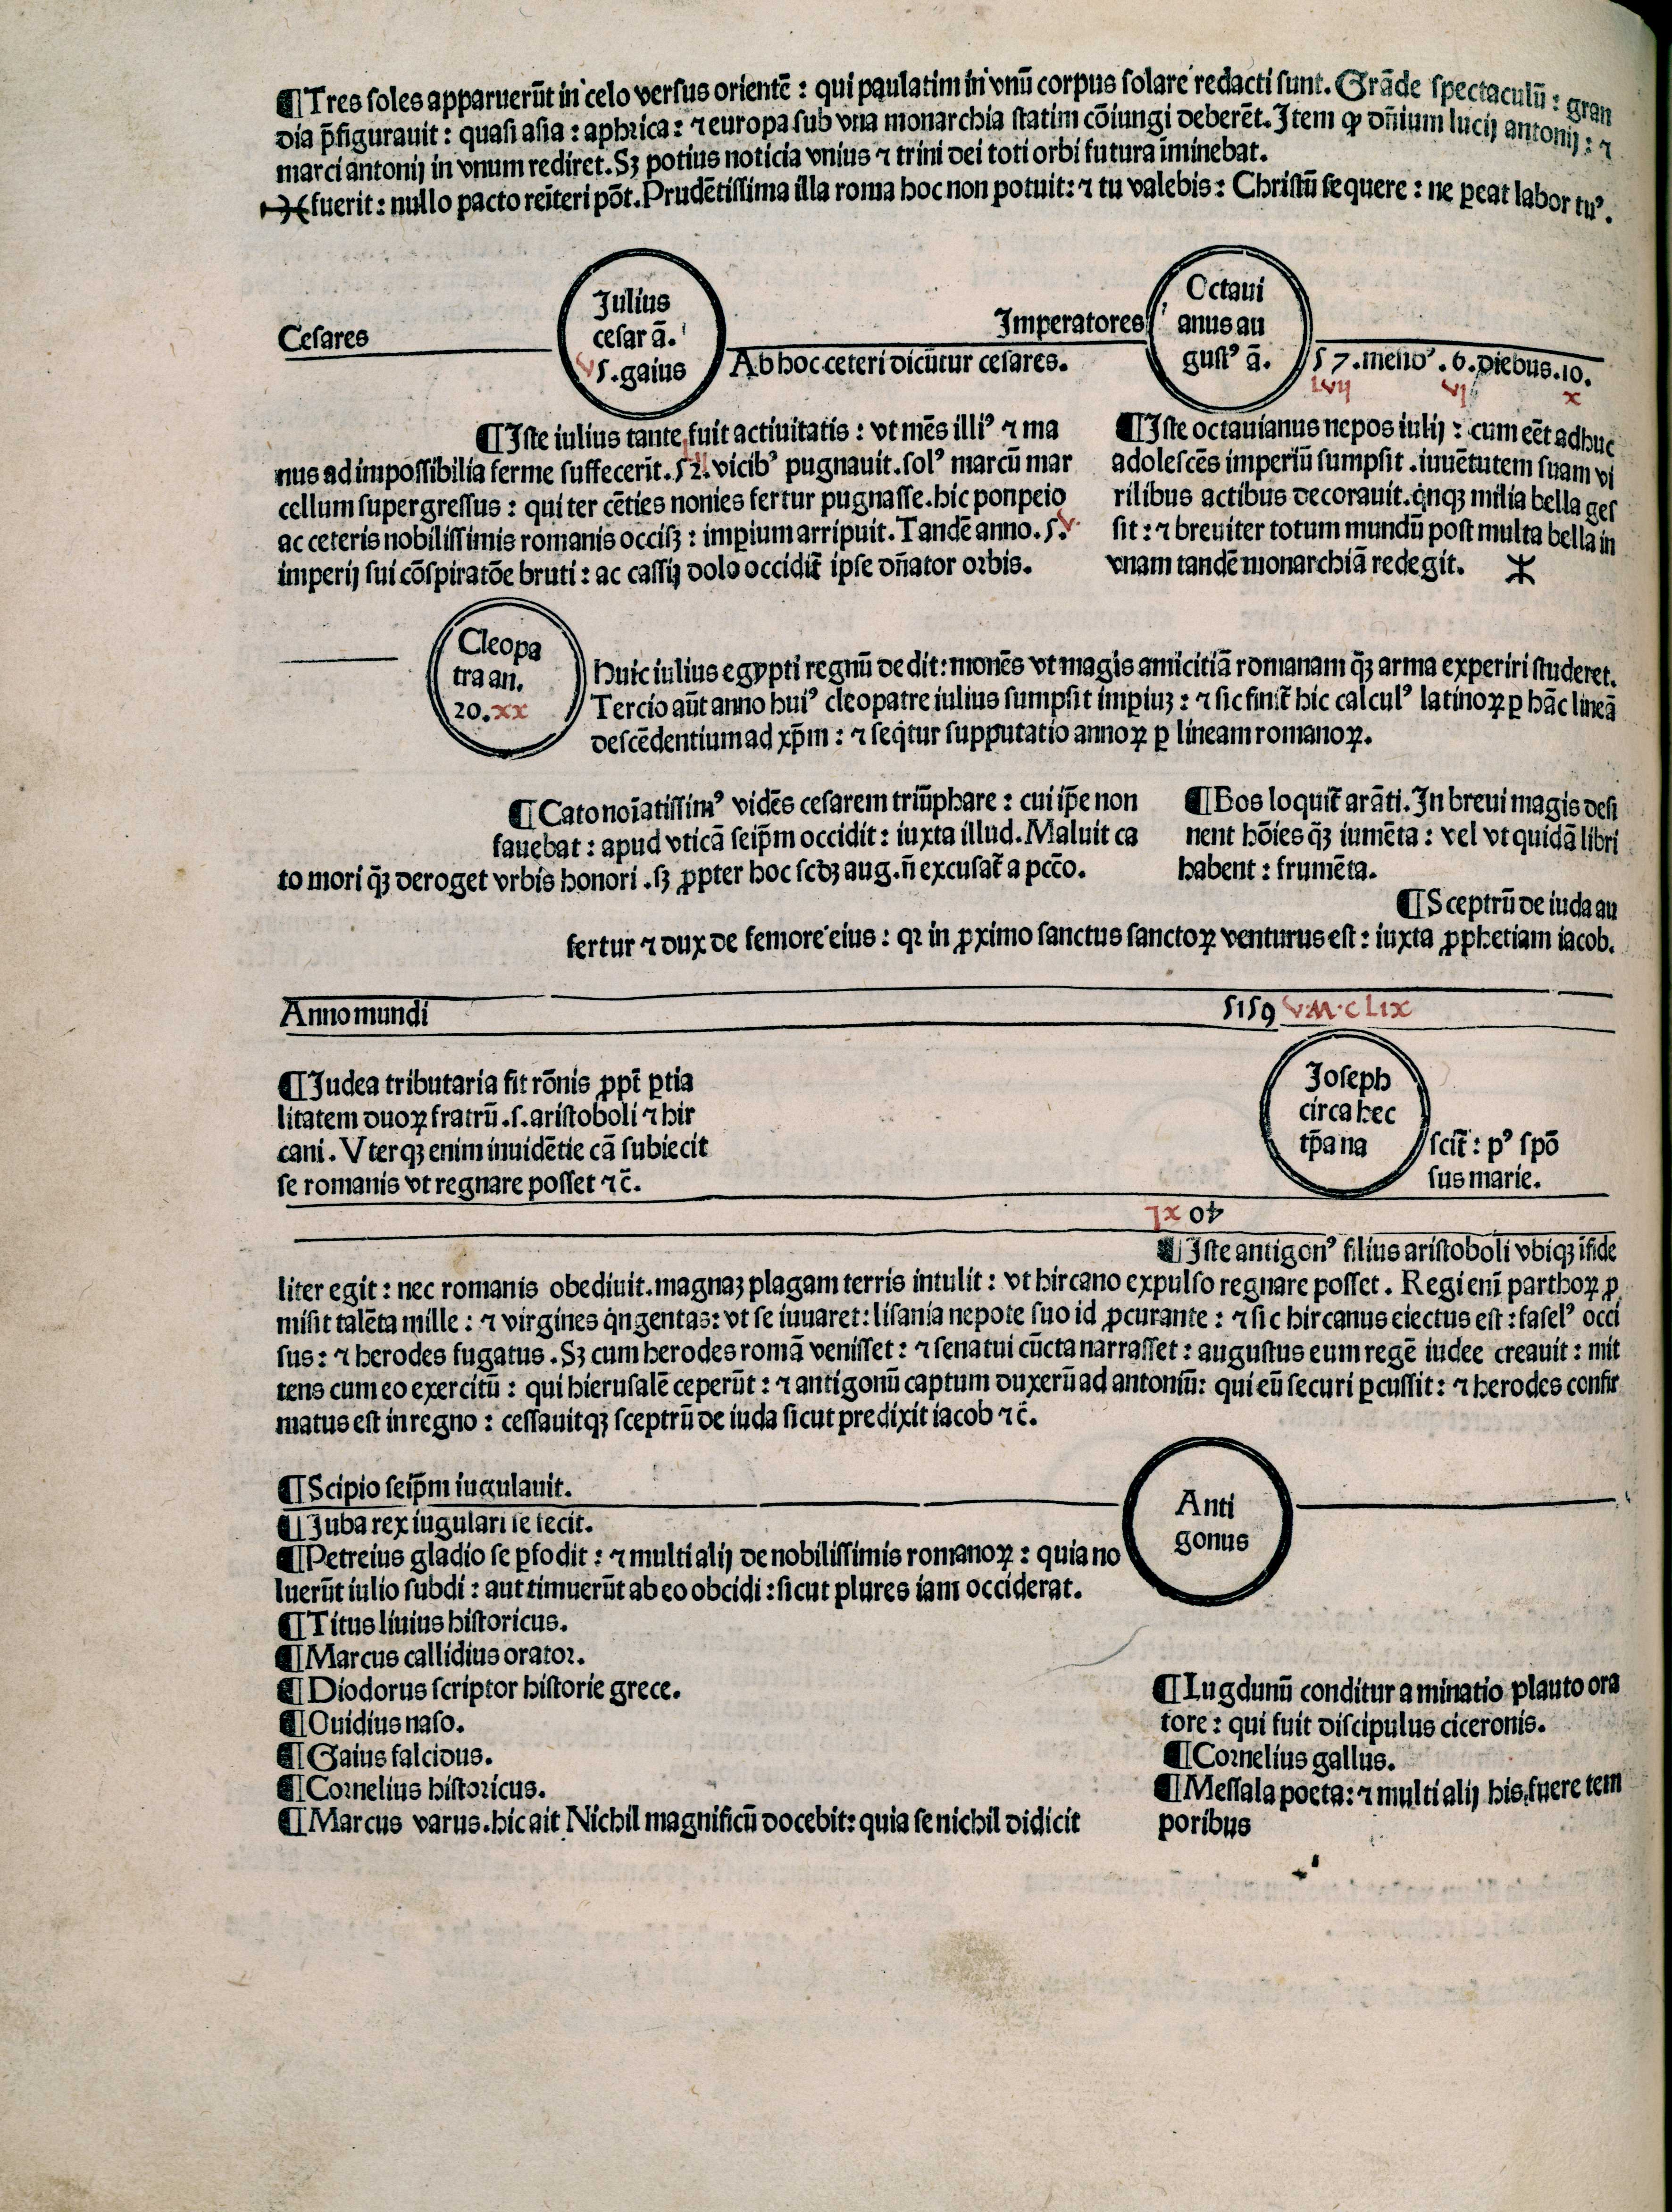 ¶Tres soles apparuerūt in celo versus orientē : qui paulatim in vnū corpus solare redacti sunt. Grāde spectaculū : gran
dia p̄figurauit : quasi asia : aphrica : ⁊ europa sub vna monarchia statim cōiungi deberēt. Item ꝙ dn̄ium lucij antonij : ⁊
marci antonij in vnum rediret. Sꝫ potius noticia vnius ⁊ trini dei toti orbi futura īminebat.
fuerit : nullo pacto reīteri pōt. Prudētissima illa roma hoc non potuit : ⁊ tu valebis : Christū sequere : ne ꝑeat labor tuꝰ.
Cesares
Julius
cesar ā.
5. gaius
v
Ab hoc ceteri dicūtur cesares.
Imperatores
Octaui
anus au
gustꝰ ā.
57. mensꝰ. 6. diebus. 10.
lvij vj x
¶Iste iulius tante fuit actiuitatis : vt mēs illiꝰ ⁊ ma
nus ad impossibilia ferme suffecerīt. 52. vicibꝰ pugnauit. solꝰ marcū mar
cellum supergressus : qui ter cēties nonies fertur pugnasse. hic ponpeio
ac ceteris nobilissimis romanis occisꝫ : imꝑium arripuit. Tandē anno. 5. v
imperij sui cōspiratōe bruti : ac cassij dolo occidit̄ ipse dn̄ator orbis.
¶Iste octauianus nepos iulij : cum eēt adhuc
adolescēs imperiū sumpsit. iuuētutem suam vi
rilibus actibus decorauit. qͥnqꝫ milia bella ges
sit : ⁊ breuiter totum mundū post multa bella in
vnam tandē monarchiā redegit.
Cleopa
tra an.
20. xx
Huic iulius egypti regnū dedit : monēs vt magis amicitiā romanam q̄ꝫ arma experiri studeret.
Tercio aūt anno huiꝰ cleopatre iulius sumpsit imꝑiuꝫ : ⁊ sic finit̄ hic calculꝰ latinoꝝ ꝑ hāc lineā
descēdentium ad xp̄m : ⁊ seqͥtur supputatio annoꝝ ꝑ lineam romanoꝝ.
¶Cato noīatissimꝰ vidēs cesarem triūphare : cui ip̄e non
fauebat : apud vticā seip̄m occidit : iuxta illud. Maluit ca
to mori q̄ꝫ deroget vrbis honori. sꝫ ꝓpter hoc scd̄ꝫ aug. n̄ excusat̄ a pcc̄o.
¶Bos loquit̄ arāti. In breui magis desi
nent hōies q̄ꝫ iumēta : vel vt quidā libri
habent : frumēta.
¶Sceptrū de iuda au
fertur ⁊ dux de femore eius : qꝛ in ꝓximo sanctus sanctoꝝ venturus est : iuxta ꝓphetiam iacob.
Anno mundi
5159 v.M.cLix
¶Judea tributaria fit rōnis ꝓpt̄ ꝑtia
litatem duoꝝ fratrū. s. aristoboli ⁊ hir
cani. Vterqꝫ enim inuidētie cā subiecit
se romanis vt regnare posset ⁊c̄.
Joseph
circa hec
tp̄a na
scit̄ : pꝰ spō
sus marie.
40 xl
¶Iste antigonꝰ filius aristoboli vbiqꝫ īfide
liter egit : nec romanis obediuit. magnaꝫ plagam terris intulit : vt hircano expulso regnare posset. Regi enī parthoꝝ ꝓ
misit talēta mille : ⁊ virgines qͥngentas : vt se iuuaret : lisania nepote suo id ꝓcurante : ⁊ sic hircanus eiectus est : faselꝰ occi
sus : ⁊ herodes fugatus. Sꝫ cum herodes romā venisset : ⁊ senatui cūcta narrasset : augustus eum regē iudee creauit : mit
tens cum eo exercitū : qui hierusalē ceperūt : ⁊ antigonū captum duxerū ad antoniū : qui eū securi ꝑcussit : ⁊ herodes confir
matus est in regno : cessauitqꝫ sceptrū de iuda sicut predixit iacob ⁊c̄.
¶Scipio seip̄m iugulauit.
¶Juba rex iugulari se fecit.
Anti
gonus
¶Petreius gladio se ꝑfodit : ⁊ multi alij de nobilissimis romanoꝝ : quia no
luerūt iulio subdi : aut timuerūt ab eo obcidi : sicut plures iam occiderat.
¶Titus liuius historicus.
¶Marcus callidius orator.
¶Diodorus scriptor historie grece.
¶Ouidius naso.
¶Gaius falcidus.
¶Cornelius historicus.
¶Marcus varus. hic ait Nichil magnificū docebit : quia se nichil didicit
¶Lugdunū conditur a minatio plauto ora
tore : qui fuit discipulus ciceronis.
¶Cornelius gallus.
¶Messala poeta : ⁊ multi alij his fuere tem
poribus